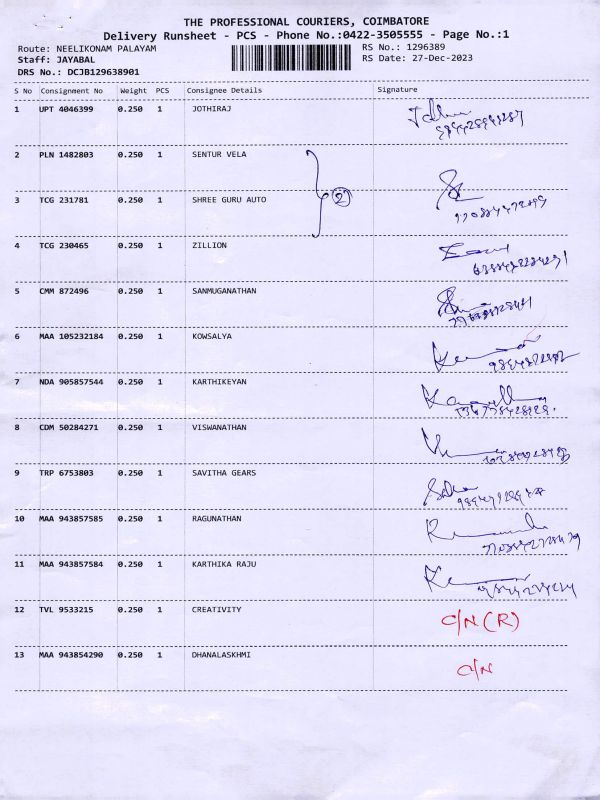 THE PROFESSIONAL COURIERS, COIMBATORE
Delivery Runsheet - PCS - Phone No.:0422-3505555 - Page No.:1
Route: NEELIKONAM PALAYAM RS No.: 1296389
Staff: JAYABAL RS Date: 27-Dec-2023
DRS No.: DCJB129638901
S No Consignment No Weight PCS Consignee Details Signature
1 UPT 4046399 0.250 1 JOTHIRAJ
2 PLN 1482803 0.250 1 SENTUR VELA
3 TCG 231781 0.250 1 SHREE GURU AUTO 2
4 TCG 230465 0.250 1 ZILLION
5 CMM 872496 0.250 1 SANMUGANATHAN
6 MAA 105232184 0.250 1 KOWSALYA
7 NDA 905857544 0.250 1 KARTHIKEYAN
8 CDM 50284271 0.250 1 VISWANATHAN
9 TRP 6753803 0.250 1 SAVITHA GEARS
10 MAA 943857585 0.250 1 RAGUNATHAN
11 MAA 943857584 0.250 1 KARTHIKA RAJU
12 TVL 9533215 0.250 1 CREATIVITY C/N (R)
13 MAA 943854290 0.250 1 DHANALASKHMI C/N